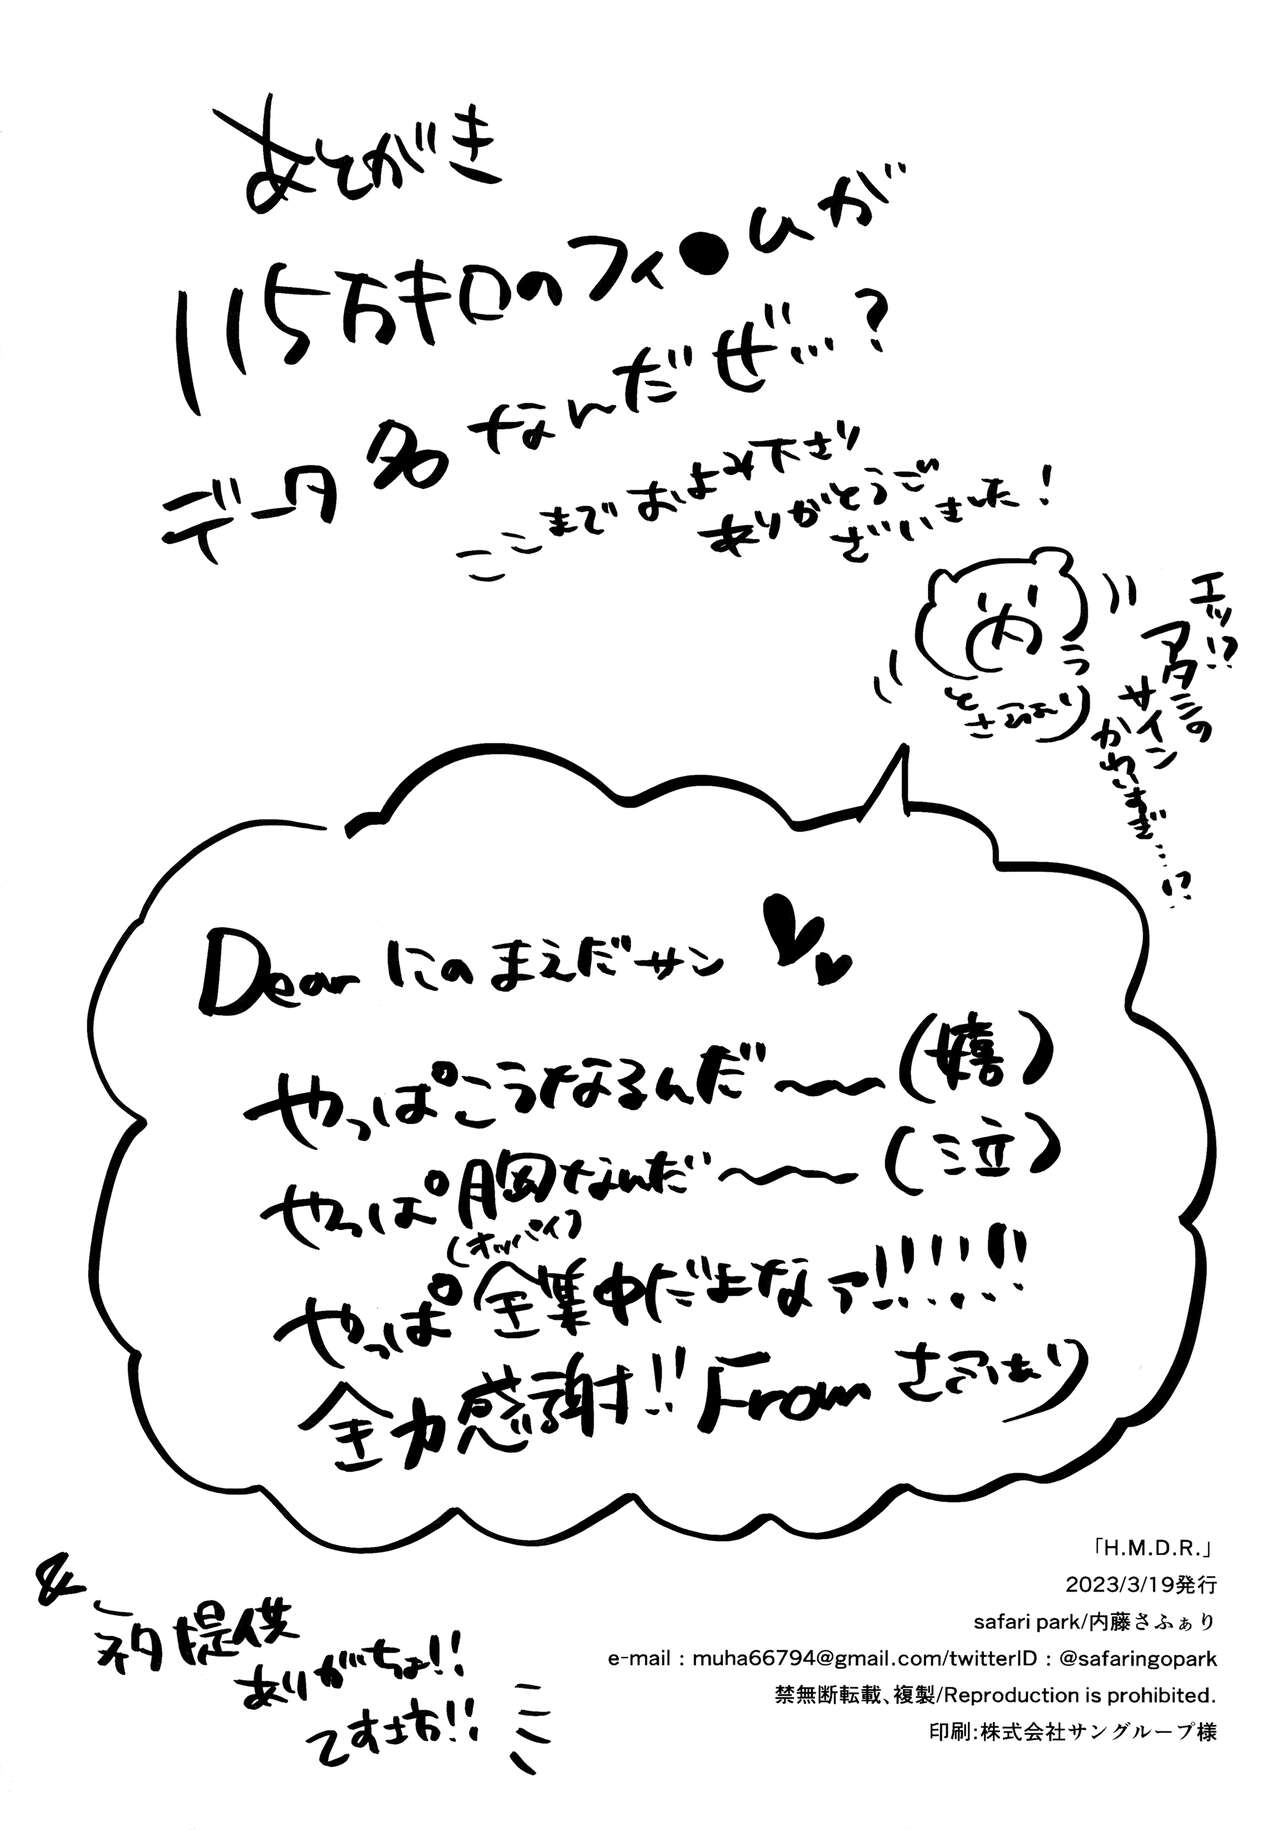 あとがき
115万キロのフィ●ムが
データ名なんだぜ…?
ここまでおよみ下さり
ありがとうご
ざいました!
エッ!?
アタシの
サイン
かわいすぎ…!?
ないとう
さふぁり
Dear にのまえだサン
やっぱこうなるんだ〜〜(嬉)
やっぱ胸なんだ〜〜(泣)
(オッパイ)
やっぱ全集中だよなァ!!!!!
全力感謝!! From さふぁり
&
ネタ提供
ありがちょ!!
てす坊!!
「H.M.D.R.」
2023/3/19発行
safari park/内藤さふぁり
e-mail : muha66794@gmail.com/twitterID : @safaringopark
禁無断転載、複製/Reproduction is prohibited.
印刷:株式会社サングループ様